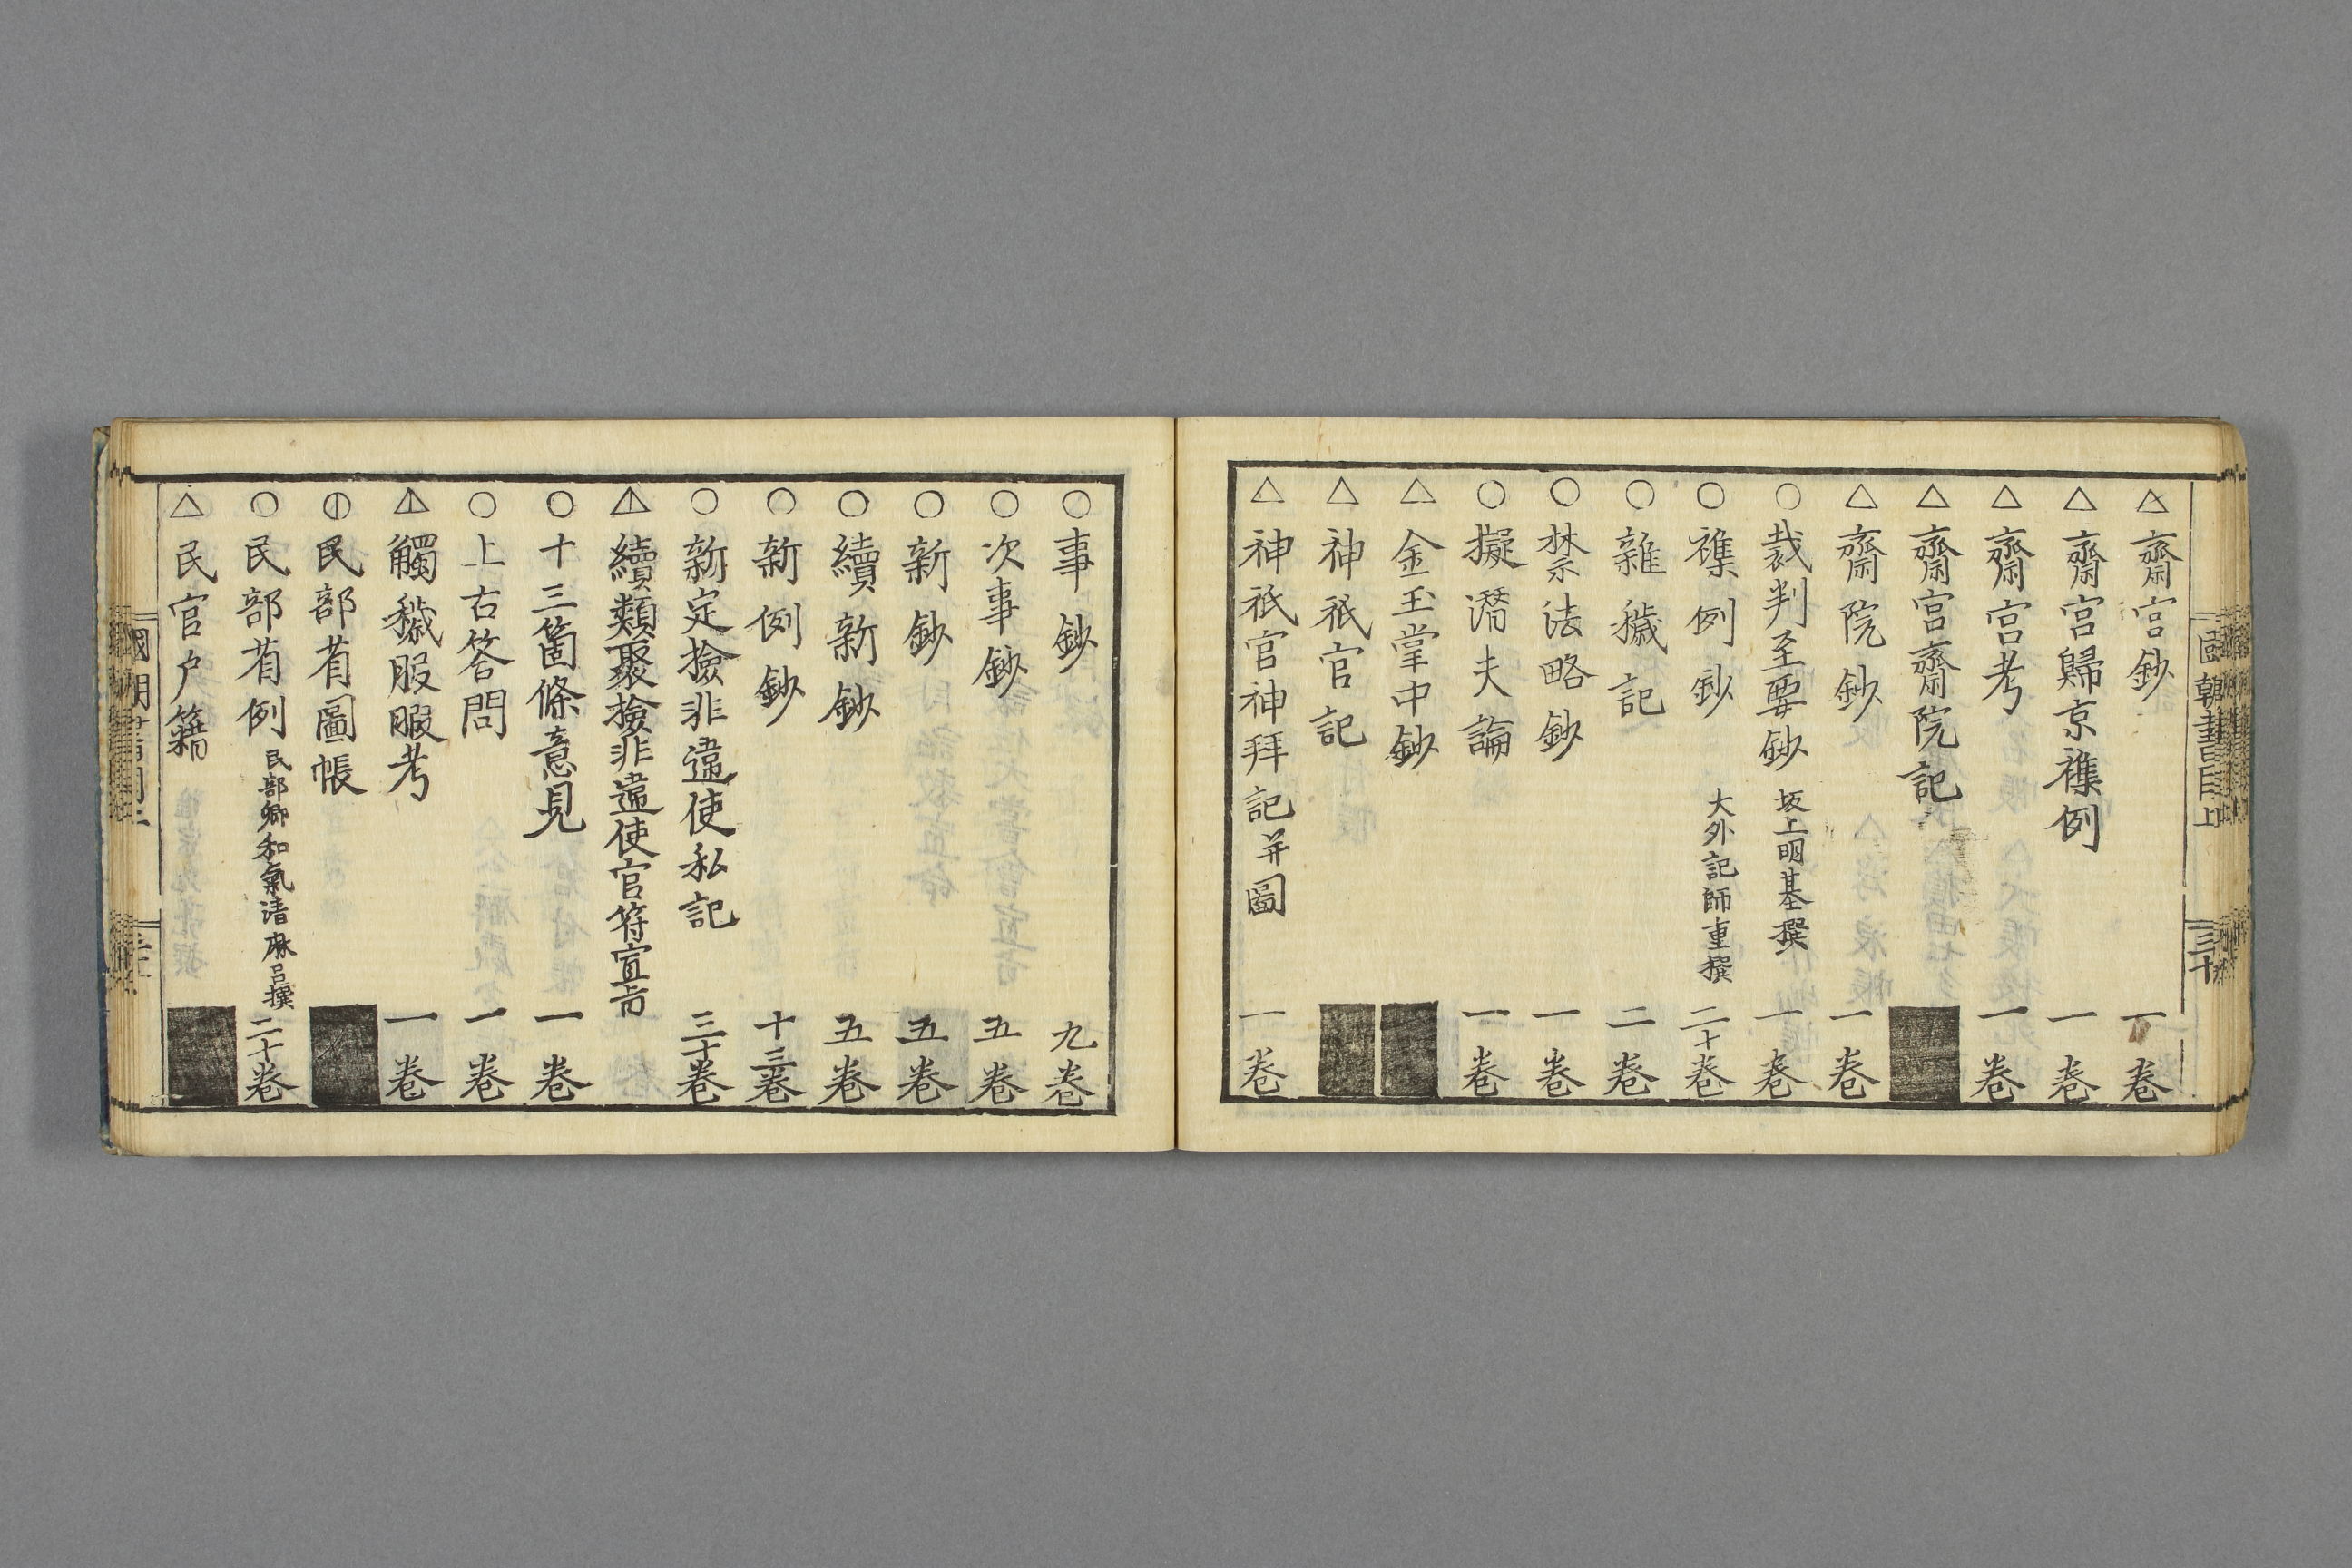 國朝書目上
三十
△齋宮鈔 一卷
△齋宮歸京襍例 一卷
△齋宮考 一卷
△齋宮齋院記
△齋院鈔 一卷
○裁判至要鈔 坂上明基撰 一卷
○襍例鈔 大外記師重撰 二十卷
○雜穢記 二卷
○禁法略鈔 一卷
○擬潛夫論 一卷
△金玉掌中鈔
△神祇官記
△神祇官神拜記并圖 一卷
○事鈔 九卷
○次事鈔 五卷
○新鈔 五卷
○續新鈔 五卷
○新例鈔 十三卷
○新定撿非違使私記 三十卷
續類聚撿非違使官符宣旨
○十三箇條意見 一卷
○上古答問 一卷
觸穢服暇考 一卷
民部省圖帳
○民部省例 民部卿和氣清麻呂撰 二十卷
△民官戶籍